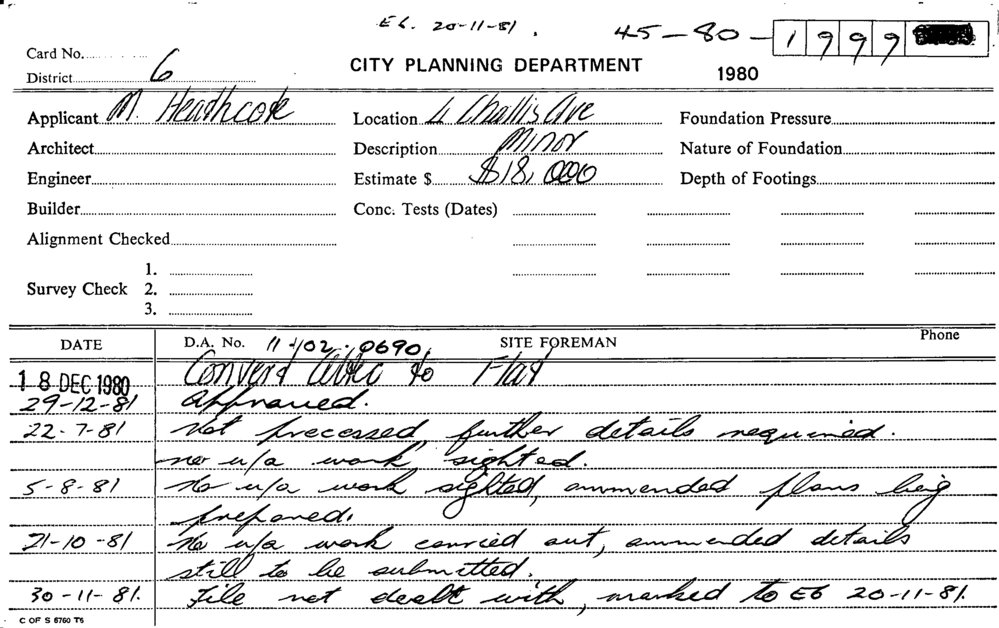 E6. 20-11-81.
45-80-1999
Card No.
District 6
CITY PLANNING DEPARTMENT
1980
Applicant M. Heathcote
Location 4 Challis Ave
Foundation Pressure
Architect
Description Minor
Nature of Foundation
Engineer
Estimate $ $18,000
Depth of Footings
Builder
Conc. Tests (Dates)
Alignment Checked
Survey Check
1.
2.
3.
DATE
D.A. No. 11-102-0690
SITE FOREMAN
Phone
18 DEC 1980 Convert Attic to Flat
29-12-81 Approved.
22-7-81 Not processed further details required.
no u/a work sighted.
5-8-81 No u/a work sighted, ammended plans being
prepared.
21-10-81 No u/a work carried out, ammended details
still to be submitted.
30-11-81. File not dealt with, marked to E6 20-11-81.
C OF S 6760 T6